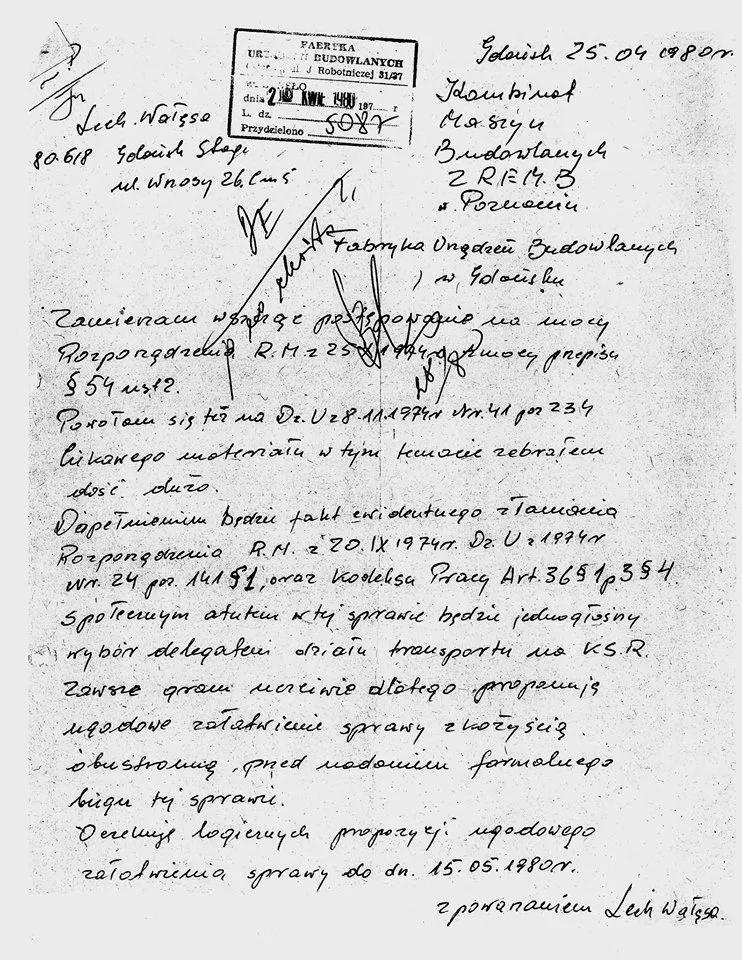 Gdańsk 25.04 1980r.
FABRYKA
URZĄDZEŃ BUDOWLANYCH
J Robotniczej 31/37
dnia 2 KWI. 1980 197 r
L. dz. 5087
Przydzielono
Lech. Wałęsa
80.618 Gdańsk Stogi
ul. Wrzosy 26.C m 5
Kombinat
Maszyn
Budowlanych
ZREMB
w. Poznaniu
Fabryka Urządzeń Budowlanych
w, Gdańsku
Zamierzam wszcząć postępowanie na mocy
Rozporządzenia R.M. z 25 1974r. mocy przepisu
§ 54 ust 2.
Powołam się też na Dz.U z 8.11.1974r Nr.41 poz 234
Ciekawego materiału w tym temacie zebrałem
dość dużo.
Dopełnieniem będzie fakt ewidentnego złamania
Rozporządzenia R.M. z 20.IX 1974r. Dz.U z 1974r
Nr. 24 poz. 141 §1, oraz Kodeksu Pracy Art.36 §1 p3 §4.
Społecznym atutem w tej sprawie będzie jednogłośny
wybór delegatem działu transportu na K.S.R.
Zawsze gram uczciwie dlatego proponuję
ugodowe załatwienie sprawy z kożyścią
obustronną, przed nadaniem formalnego
biegu tej sprawie.
Oczekuję logicznych propozycji ugodowego
załatwienia sprawy do dn. 15.05.1980r.
z poważaniem Lech Wałęsa.